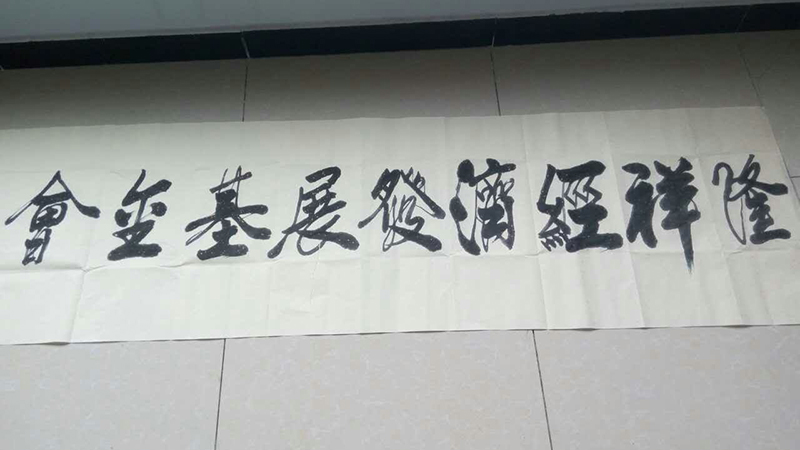 隆祥經濟發展基金會